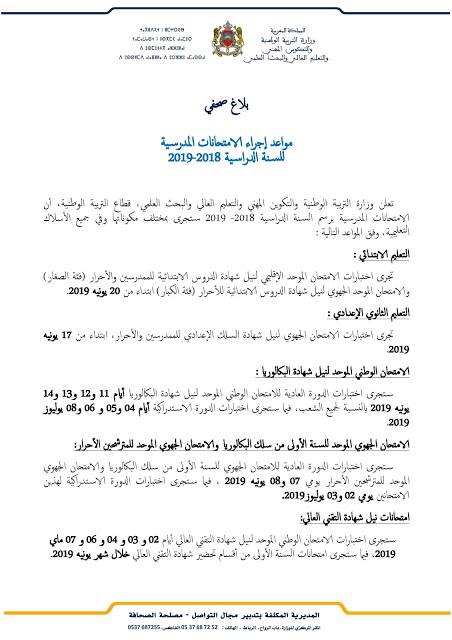 المملكة المغربية
وزارة التربية الوطنية
والتكوين المهني
والتعليم العالي والبحث العلمي
بلاغ صحفي
مواعد إجراء الامتحانات المدرسية
للسنة الدراسية 2018-2019
تعلن وزارة التربية الوطنية والتكوين المهني والتعليم العالي والبحث العلمي، قطاع التربية الوطنية، أن
الامتحانات المدرسية برسم السنة الدراسية 2018- 2019 ستجرى بمختلف مكوناتها وفي جميع الأسلاك
التعليمية، وفق المواعد التالية :
التعليم الابتدائي :
تجرى اختبارات الامتحان الموحد الإقليمي لنيل شهادة الدروس الابتدائية للممدرسين والأحرار (فئة الصغار)
والامتحان الموحد الجهوي لنيل شهادة الدروس الابتدائية للأحرار (فئة الكبار) ابتداء من 20 يونيه 2019.
التعليم الثانوي الإعدادي :
تجرى اختبارات الامتحان الجهوي لنيل شهادة السلك الإعدادي للممدرسين والأحرار، ابتداء من 17 يونيه
2019.
الامتحان الوطني الموحد لنيل شهادة البكالوريا :
ستجرى اختبارات الدورة العادية للامتحان الوطني الموحد لنيل شهادة البكالوريا أيام 11 و12 و13 و14
يونيه 2019 بالنسبة لجميع الشعب، فيما ستجرى اختبارات الدورة الاستدراكية أيام 04 و05 و 06 و08 يوليوز
2019.
الامتحان الجهوي الموحد للسنة الأولى من سلك البكالوريا والامتحان الجهوي الموحد للمترشحين الأحرار:
ستجرى اختبارات الدورة العادية للامتحان الجهوي للسنة الأولى من سلك البكالوريا والامتحان الجهوي
الموحد للمترشحين الأحرار يومي 07 و08 يونيه 2019 ، فيما ستجرى اختبارات الدورة الاستدراكية لهذين
الامتحانين يومي 02 و03 يوليوز2019.
امتحانات نيل شهادة التقني العالي:
ستجرى اختبارات الامتحان الوطني الموحد لنيل شهادة التقني العالي أيام 02 و 03 و 04 و 06 و 07 ماي
2019، فيما ستجرى امتحانات السنة الأولى من أقسام تحضير شهادة التقني العالي خلال شهر يونيه 2019.
المديرية المكلفة بتدبير مجال التواصل - مصلحة الصحافة
المقر المركزي للوزارة، باب الرواح - الرباط. - الهاتف: 05 37 68 72 52 الفاكس: 0537 687255